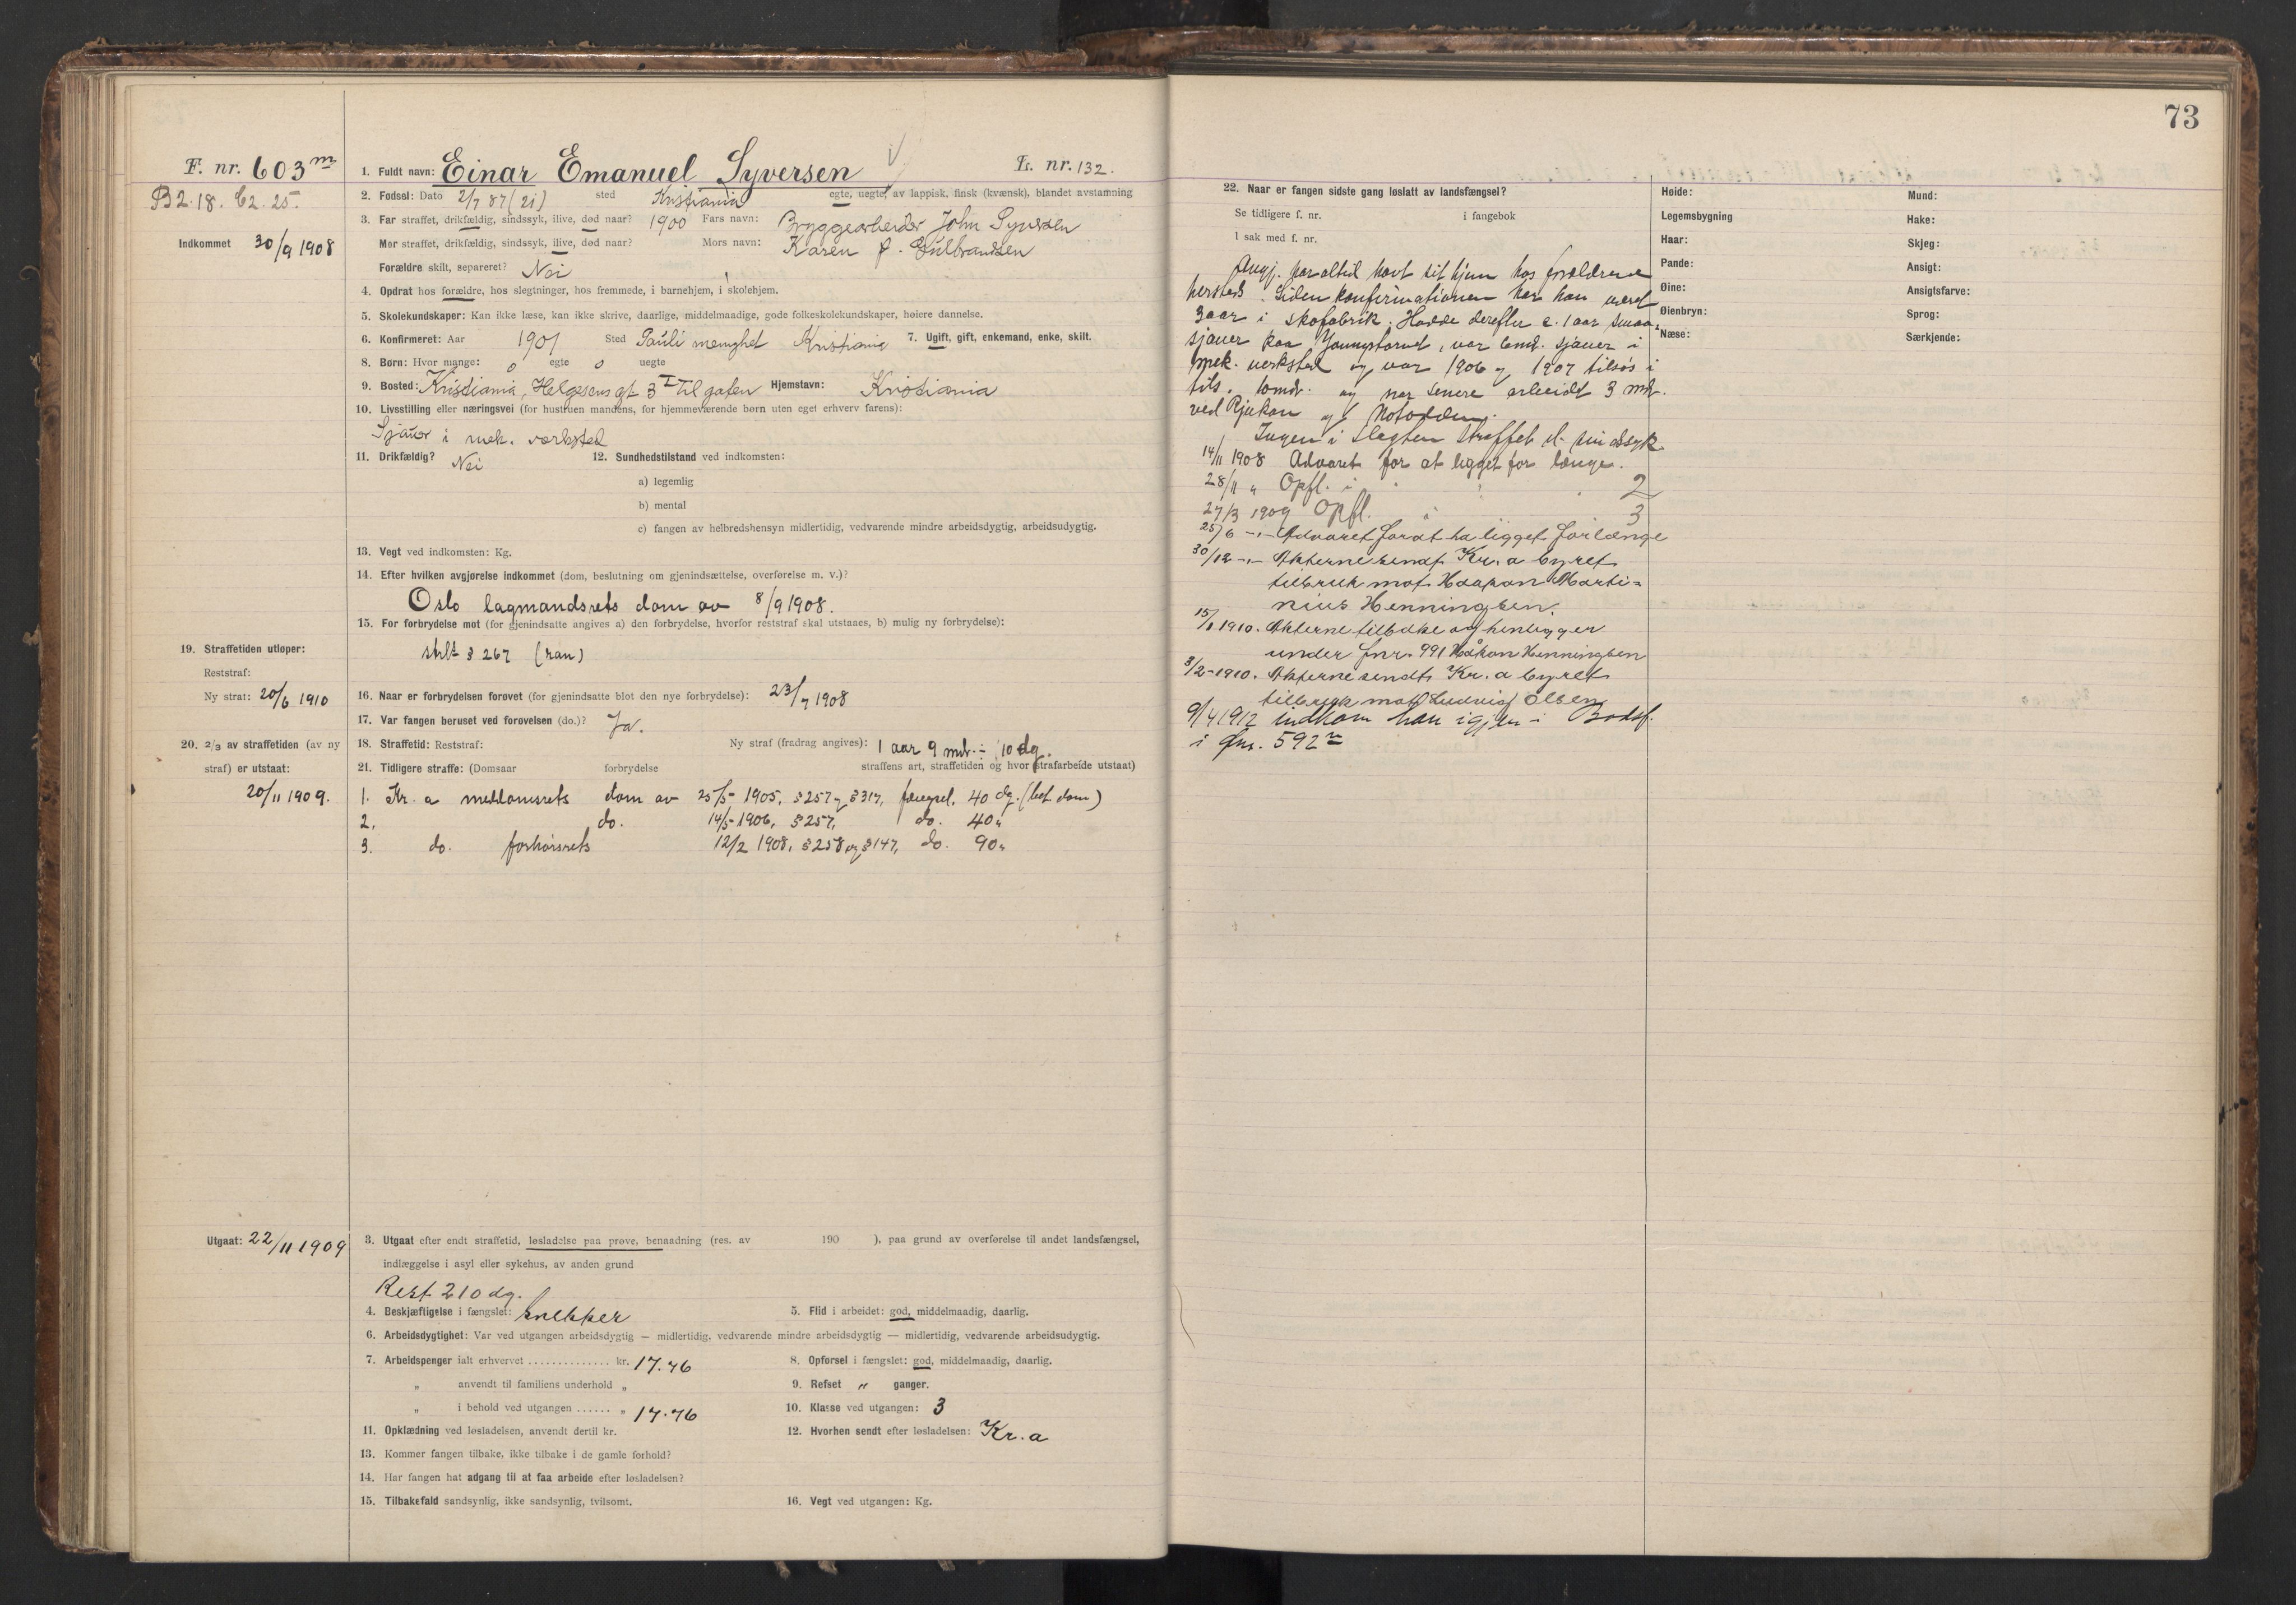 73
F. nr. 603 m
1. Fuldt navn: Einar Emanuel Syversen L. nr. 132.
B2. 18. C2. 25.
2. Fødsel: Dato 2/7 87 (21) sted Kristiania egte, uegte, av lappisk, finsk (kvænsk), blandet avstamning
3. Far straffet, drikfældig, sindssyk, ilive, død naar? 1900 Fars navn: Bryggearbeider John Syversen
Indkommet 30/9 1908
Mor straffet, drikfældig, sindssyk, ilive, død naar? Mors navn: Karen f. Gulbrandsen
Forældre skilt, separeret? Nei
4. Opdrat hos forældre, hos slegtninger, hos fremmede, i barnehjem, i skolehjem.
5. Skolekundskaper: Kan ikke læse, kan ikke skrive, daarlige, middelmaadige, gode folkeskolekundskaper, høiere dannelse.
6. Konfirmeret: Aar 1901 Sted Pauli menighet Kristiania 7. Ugift, gift, enkemand, enke, skilt.
8. Børn: Hvor mange: 0 egte 0 uegte
9. Bosted: Kristiania, Helgesens gt. 3 I til gaten Hjemstavn: Kristiania
10. Livsstilling eller næringsvei (for hustruen mandens, for hjemmeværende børn uten eget erhverv farens):
Sjauer i mek. verksted
11. Drikfældig? Nei 12. Sundhedstilstand ved indkomsten:
a) legemlig
b) mental
c) fangen av helbredshensyn midlertidig, vedvarende mindre arbeidsdygtig, arbeidsudygtig.
13. Vegt ved indkomsten: Kg.
14. Efter hvilken avgjørelse indkommet (dom, beslutning om gjenindsættelse, overførelse m. v.)?
Oslo lagmandsrets dom av 8/9 1908.
15. For forbrydelse mot (for gjenindsatte angives a) den forbrydelse, hvorfor reststraf skal utstaaes, b) mulig ny forbrydelse):
strl. § 267 (ran)
19. Straffetiden utløper:
Reststraf:
Ny straf: 20/6 1910
16. Naar er forbrydelsen forøvet (for gjenindsatte blot den nye forbrydelse): 23/7 1908
17. Var fangen beruset ved forøvelsen (do.)? Ja.
20. 2/3 av straffetiden (av ny straf) er utstaat:
20/11 1909.
18. Straffetid: Reststraf: Ny straf (fradrag angives): 1 aar 9 mdr. ÷ 10 dg.
21. Tidligere straffe: (Domsaar forbrydelse straffens art, straffetiden og hvor strafarbeide utstaat)
1. Kr.a meddomsrets dom av 25/5 1905, § 257 og § 317, fængsel, 40 dg. (bet. dom)
2. do. 14/5 1906, § 257, do. 40 "
3. do. forhørsrets 12/2 1908, § 258 og § 147, do. 90 "
Utgaat: 22/11 1909
3. Utgaat efter endt straffetid, løsladelse paa prøve, benaadning (res. av 190 ), paa grund av overførelse til andet landsfængsel,
indlæggelse i asyl eller sykehus, av anden grund
Rest 210 dg.
4. Beskjæftigelse i fængslet: Snekker 5. Flid i arbeidet: god, middelmaadig, daarlig.
6. Arbeidsdygtighet: Var ved utgangen arbeidsdygtig — midlertidig, vedvarende mindre arbeidsdygtig — midlertidig, vedvarende arbeidsudygtig.
7. Arbeidspenger ialt erhvervet .............. kr. 17.76 8. Opførsel i fængslet: god, middelmaadig, daarlig.
" anvendt til familiens underhold " 9. Refset " ganger.
" i behold ved utgangen ...... " 17.76 10. Klasse ved utgangen: 3
11. Opklædning ved løsladelsen, anvendt dertil kr. 12. Hvorhen sendt efter løsladelsen: Kr.a
13. Kommer fangen tilbake, ikke tilbake i de gamle forhold?
14. Har fangen hat adgang til at faa arbeide efter løsladelsen?
15. Tilbakefald sandsynlig, ikke sandsynlig, tvilsomt. 16. Vegt ved utgangen: Kg.
22. Naar er fangen sidste gang løslatt av landsfængsel?
Se tidligere f. nr. i fangebok
I sak med f. nr.
Angj. har altid havt sit hjem hos forældrene
hersteds. Siden konfirmationen har han været
3 aar i skofabrik. Hadde derefter c. 1 aar smaa-
sjauer paa Youngstorvet, var 6 md. sjauer i
mek. verksted og var 1906 og 1907 tilsøs i
tils. 10 mdr. og har senere arbeidt 3 mdr.
ved Rjukan og Notodden.
Ingen i slegten straffet el. sindssyk
14/11 1908 Advaret for at ligget for længe.
28/11 " Opfl. i 2
27/3 1909 Opfl. i 3
25/6 -"- Advaret for at ha ligget for længe
30/12 -"- Akterne sendt Kr.a byret
til bruk mot Haakon Marti=
nius Henningsen.
15/1 1910. Akterne tilbake og henligger
under fnr. 991 Håkon Henningsen
3/2-1910. Akterne sendt Kr.a byret
til bruk mot Ludvig Olsen
9/4 1912 indkom han igjen i Botsf.
i fnr. 592 n
Høide:
Legemsbygning
Haar:
Pande:
Øine:
Øienbryn:
Næse:
Mund:
Hake:
Skjeg:
Ansigt:
Ansigtsfarve:
Sprog:
Særkjende: